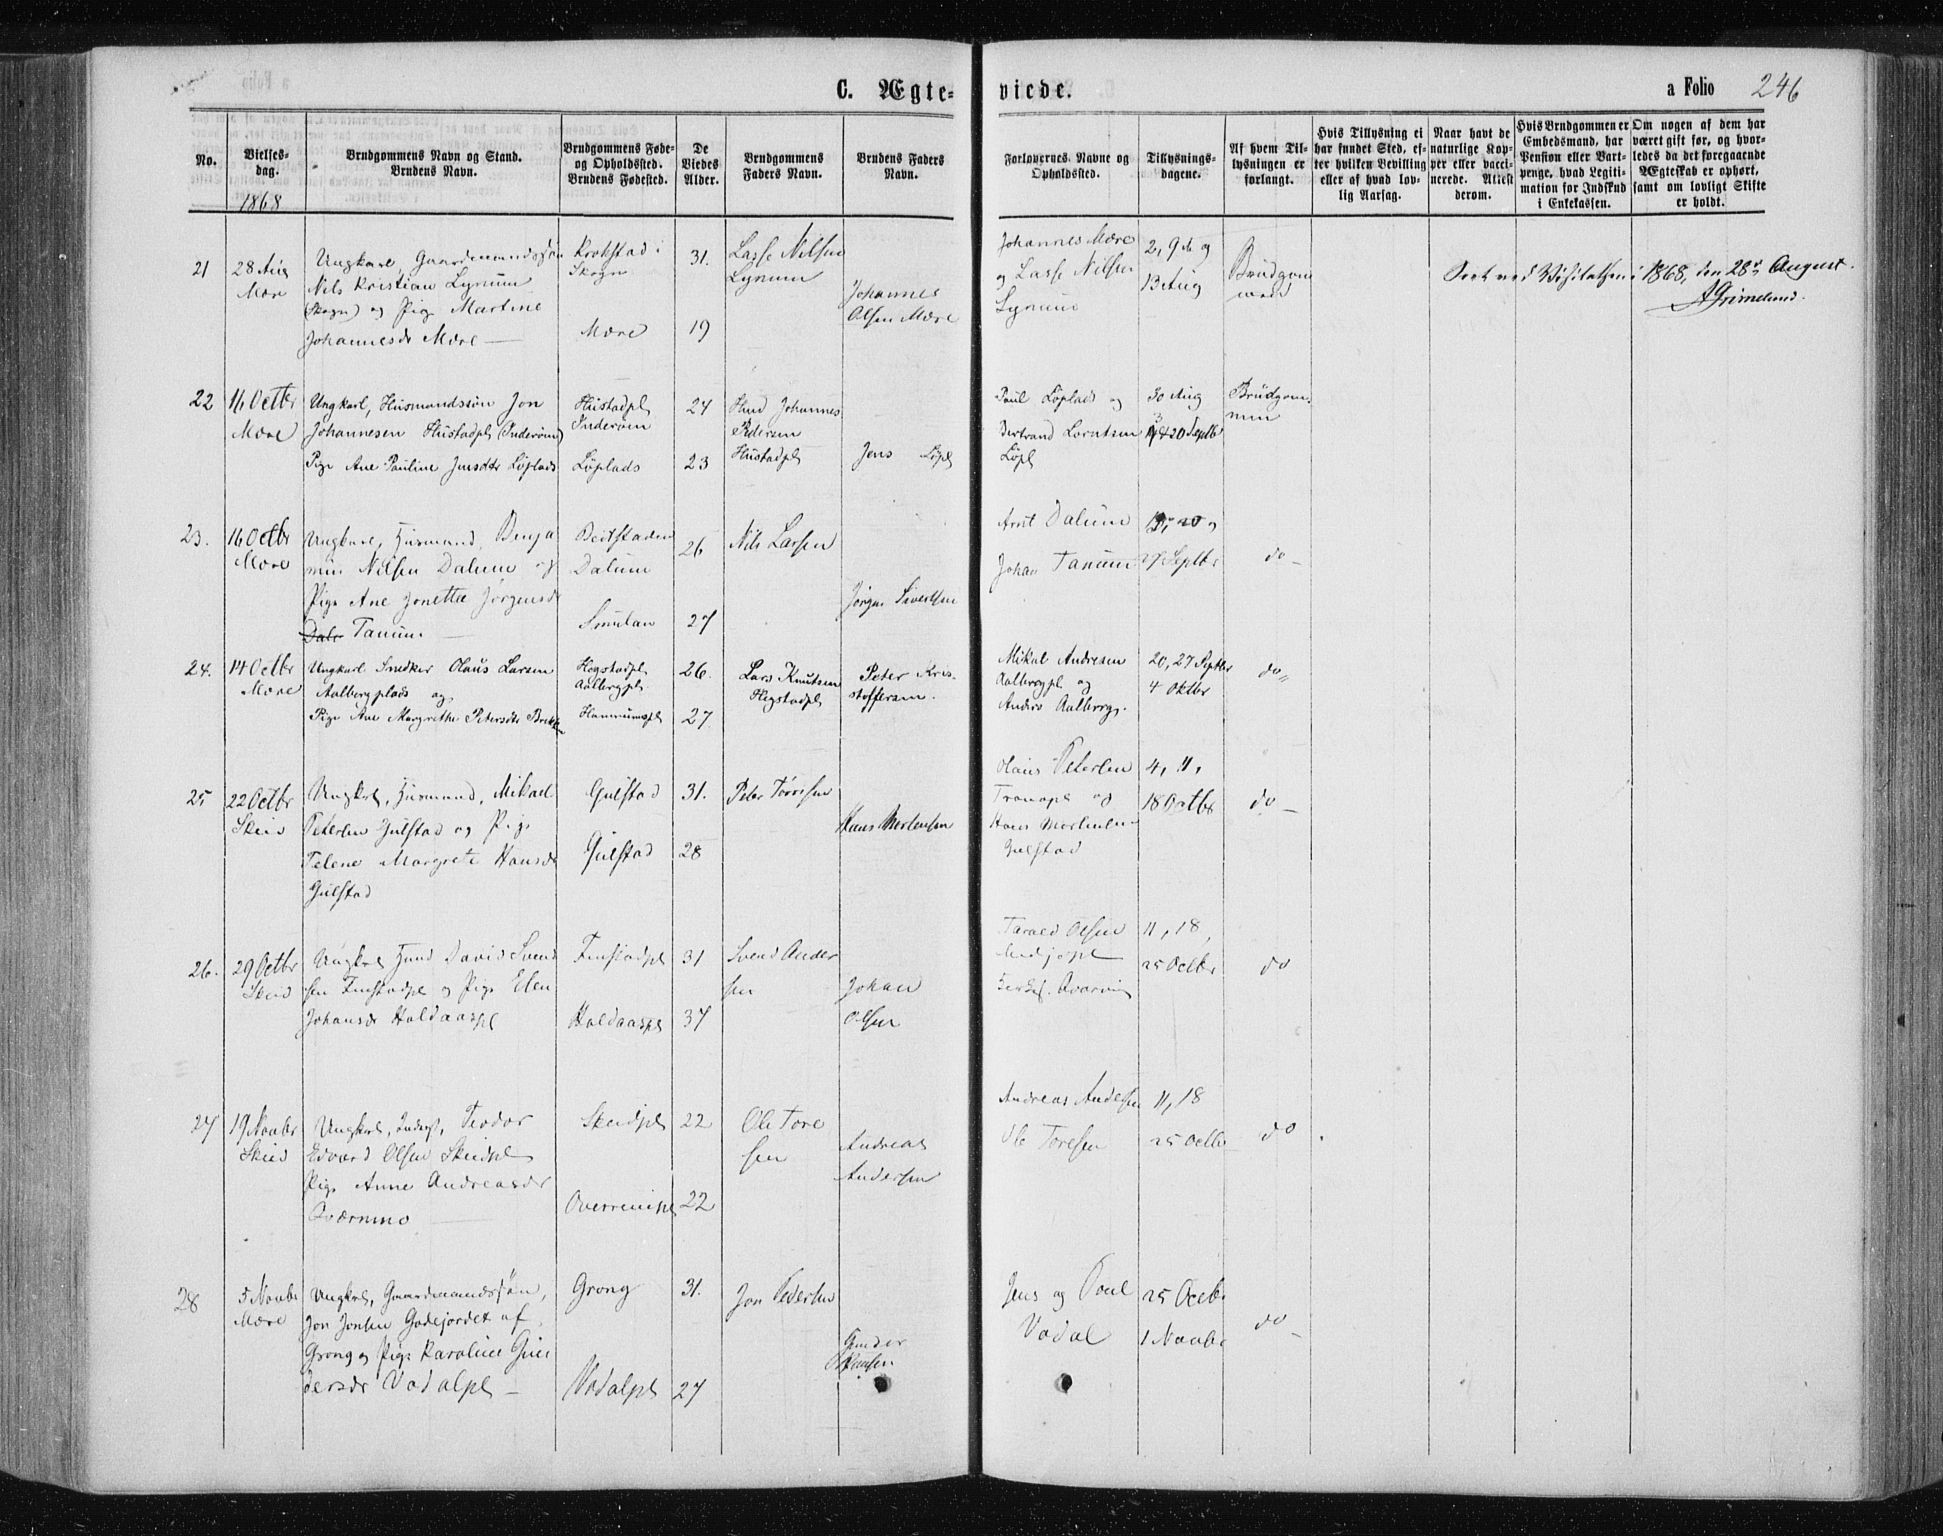 C. Ægte-
viede.
a Folio 246
No.
Vielses-
dag.
1868
Brudgommens Navn og Stand.
Brudens Navn.
Brudgommens Føde-
og Opholdssted.
Brudens Fødested.
De
Viedes
Alder.
Brudgommens
Faders Navn.
Brudens Faders
Navn.
Forlovernes Navne og
Opholdssted.
Tillysnings-
dagene.
Af hvem Til-
lysningen er
forlangt.
Hvis Tillysning ei
har fundet Sted, ef-
ter hvilken Bevilling
eller af hvad lov-
lig Aarsag.
Naar havt de
naturlige Kop-
per eller vacci-
nerede. Attest
derom.
Hvis Brudgommen er
Embedsmand, har
Pension eller Vart-
penge, hvad Legiti-
mation for Indskud
i Enkekassen.
Om nogen af dem har
været gift før, og hvor-
ledes da det foregaaende
Ægteskab er ophørt,
samt om lovligt Skifte
er holdt.
21
28 Aug
Mære
Ungkarl, Gaardmandssøn
Nils Kristian Lynum
(Skogn) og Pige Martine
Johannesdr Mære
Krokstad i
Skogn
Mære
31.
19
Lasse Nilsen
Lynum
Johannes
Olsen Mære
Johannes Mære
og Lasse Nilsen
Lynum
2, 9de og
13 Aug
Brudgom
men
ved Visitatsen i 1868, den 28de August.
AGrimelund.
22
16 Octbr
Mære
Ungkarl, Husmandssøn Jon
Johannesen Hustadpl (Inderøen)
Pige Ane Pauline Jensdtr Löplads
Hustadpl
Inderøen
Löplads
24
23
Husmd Johannes
Pedersen
Hustadpl
Jens Löpl
Paul Löplads og
Bertrand Lorntsen
Löpl
30 Aug
20 Septbr
Brüdgom-
men
23.
16 Octbr
Mære
Ungkarl, Husmand, Benja
min Nilsen Dalum og
Pige Ane Jonetta Jørgensdr
Tanum
Beitstaden
Dalum
Smulan
26
27
Nils Larsen
Jørgen Sivertsen
Arnt Dalum
Johan Tanum
20 og
27 Septbr
do
24.
14 Octbr
Mære
Ungkarl Snedker Olaus Larsen
Aalbergplads og
Pige Ane Margrethe Petersdtr Brekken
Hegstadpl
Aalbergpl
Hammumspl
26.
27
Lars Knutsen
Hegstadpl
Peter Kris-
stoffersen.
Mikal Andresen
Aalbergpl og
Anders Aalberg.
20, 27 Septbr
4 Oktbr
do
25
22 Octbr
Skeid
Ungkarl, Husmand, Mikael
Petersen Gulstad og Pige
Telene Margrete Hansdr
Gulstad
Gulstad
Gülstad
31.
28
Peter Torrisen
Hans Mortensen
Olaus Petersen
og
Hans Mortensen
Gulstad
4, 11,
18 Octbr
do
26.
29 Octbr
Skeid
Ungkarl Husmd David Svend
sen Finstadpl og Pige Elen
Johansdr Holdaaspl
Finstadpl
Holdaaspl
31
37
Svend Ander
sen
Johan
Olsen
Olsen
11, 18,
25 Octbr
do
27
19 Novbr
Skeid
Ungkarl, Inderst, Teodor
Edvard Olsen Skeidpl
Pige Anne Andreasdr
Qværnmo
Skeidpl
Overreinspl
22
22
Ole Tore
sen
Andreas
Andersen
Andreas Andersen
Ole Toresen
11, 18
25 Octbr
do
28
5 Novbr
Mære
Ungkarl, Gaardmandssøn,
Jon Jonsen Godejordet af
Grong og Pige Karoline Gun
dersdr Vodalpl
Grong
Vodalpl
31.
27
Jon Pedersen
Gunder
Jens og Poul
Vodal
25 Octbr
1 Novbr
do